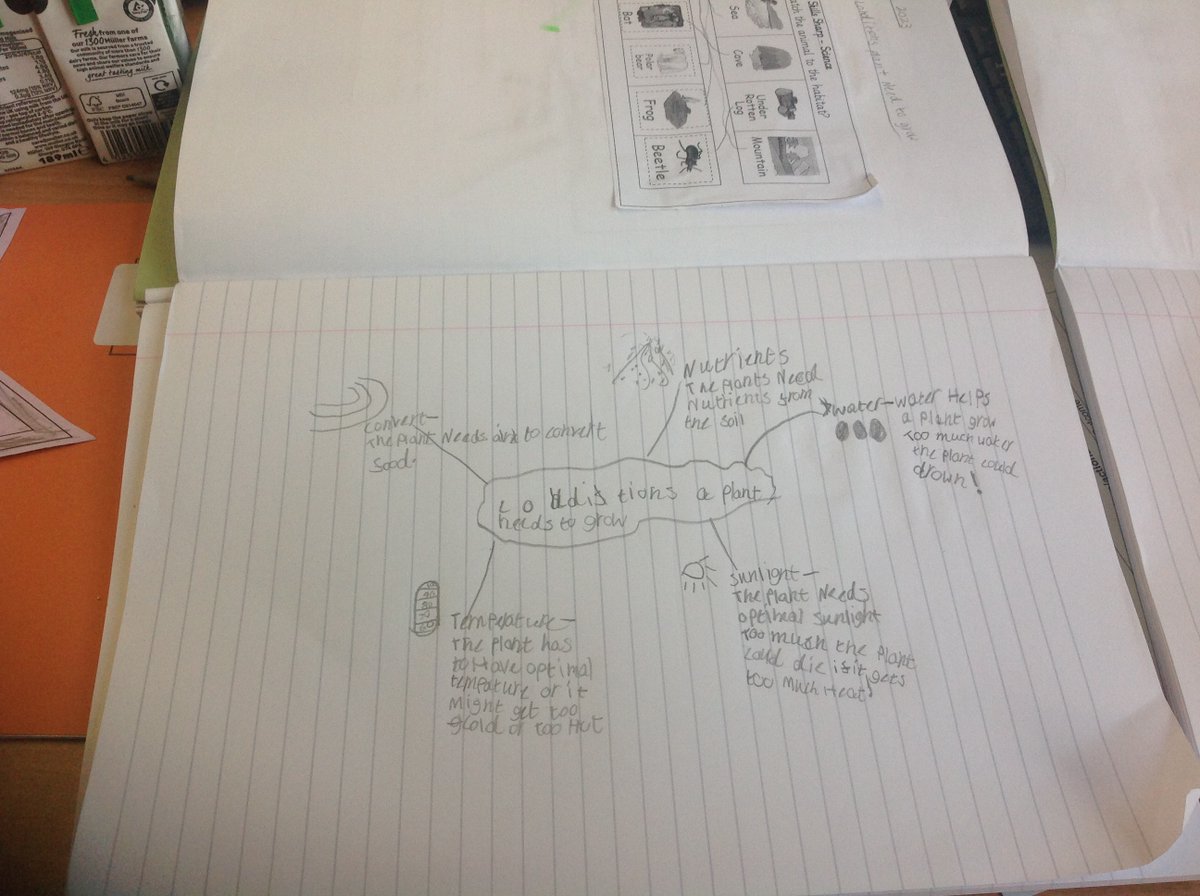 Fresh from one of
our 1300 Müller farms
Our milk is sourced from a trusted
great tasting milk
FSC
MIX
Board
189ml e
2023
plant need to grow
Skills Sharp - Science
Match the animal to the habitat?
Sea
Cave
Under
Rotten
Log
Mountain
Bat
Polar
bear
Frog
Beetle
Nutrients
The Plants Need
Nutrients from
the soil
water- water Helps
a plant grow
Too much water
the plant could
drown!
convert-
The Plant Needs air to convert
food.
conditions a plant
needs to grow
Sunlight-
The Plant Needs
optimal sunlight
Too much the plant
could die if it gets
too much Heat
Temperature-
The plant has
to Have optimal
tempature or it
might get too
cold or too Hot